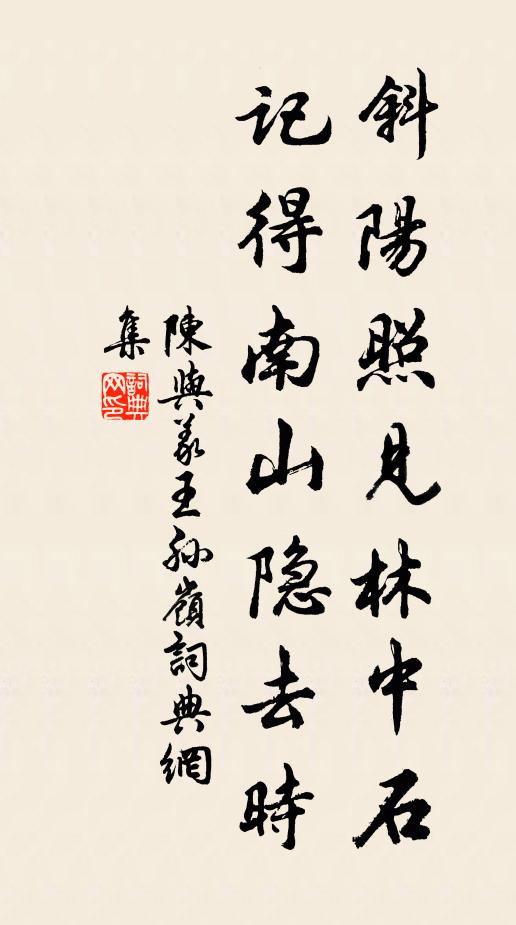 斜陽照見林中石
記得南山隐去時
陳與義王孫嶺詞典網
集
詞典網印